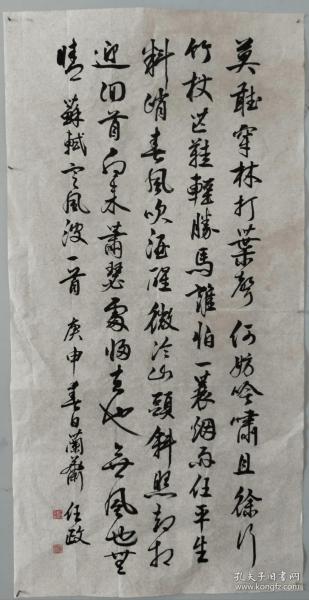 莫聽穿林打葉聲何妨吟嘯且徐行
竹杖芒鞋輕勝馬誰怕一蓑烟雨任平生
料峭春風吹酒醒微冷山頭斜照却相
迎回首向來蕭瑟處歸去也無風也無
晴 蘇軾定風波一首 庚申春日蘭齋任政
孔夫子旧书网